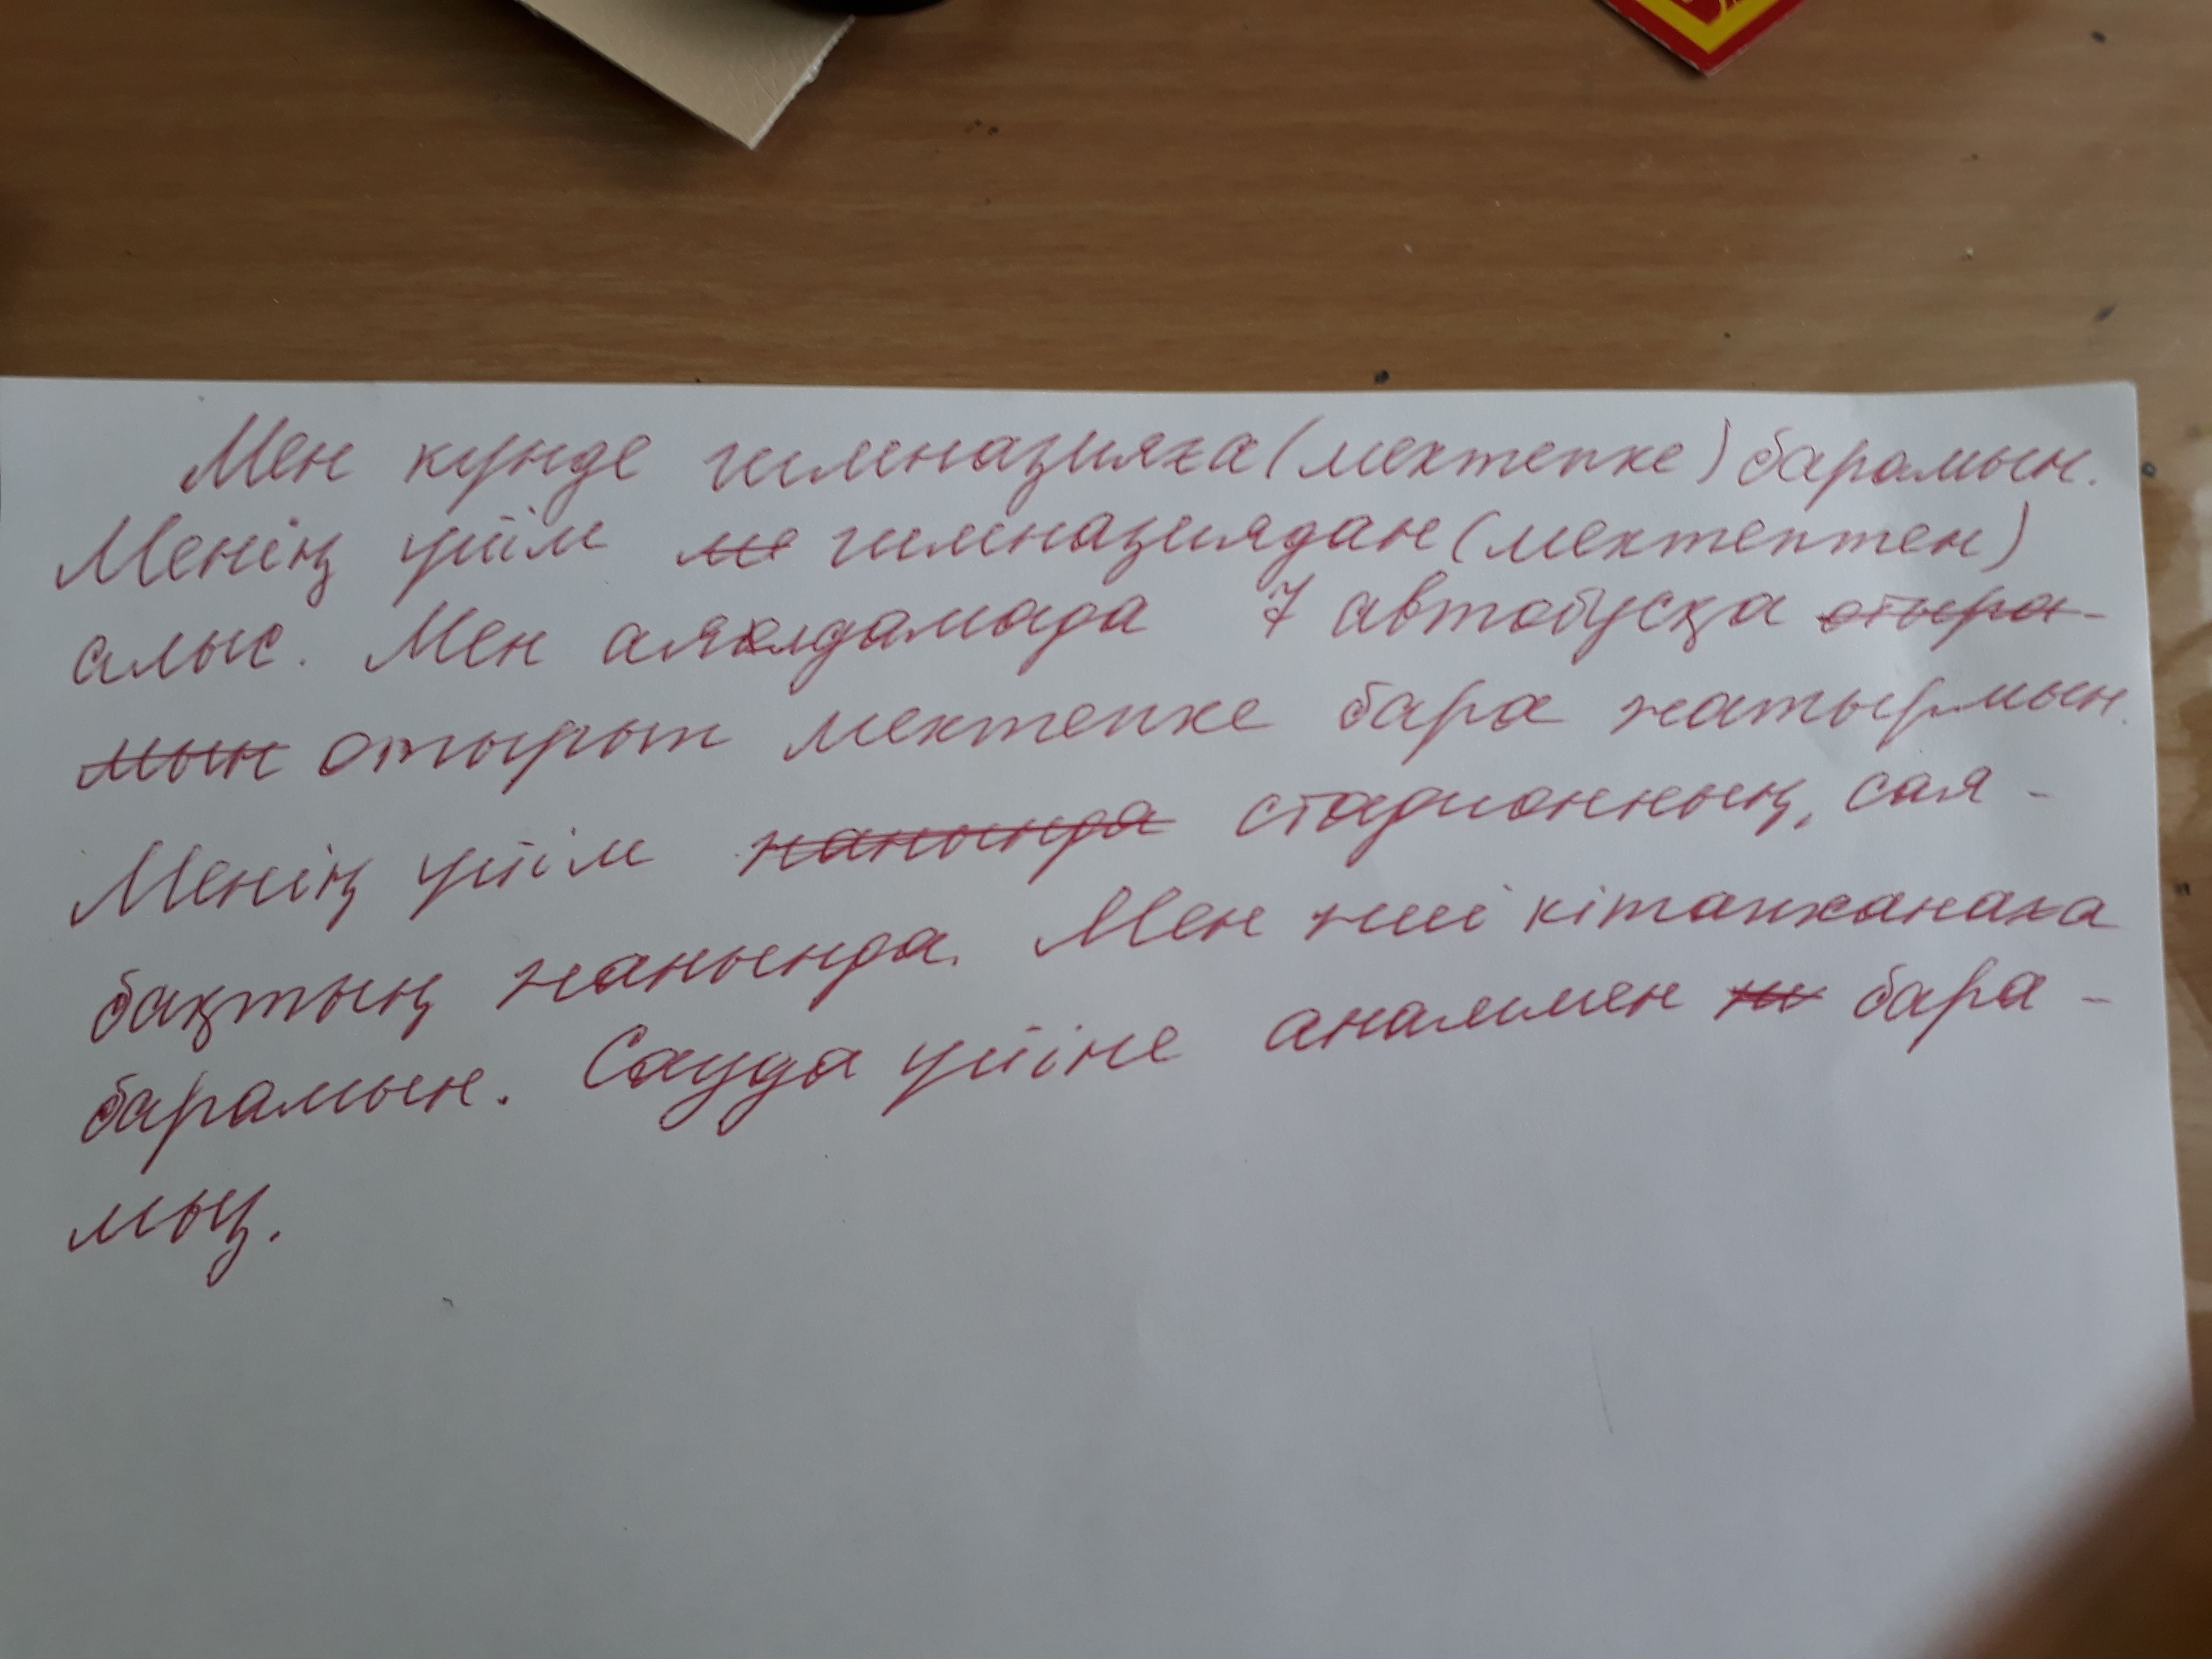 Мен күнде гимназияға (мектепке) барамын.
Менің үйім ме гимназиядан (мектептен)
алыс. Мен аялдамада 7 автобусқа отыра-
мын отырып мектепке бара жатырмын.
Менің үйім жанында стадионның, сая-
бақтың жанында. Мен жиі кітапханаға
барамын. Сауда үйіне анаммен жи бара-
мыз.